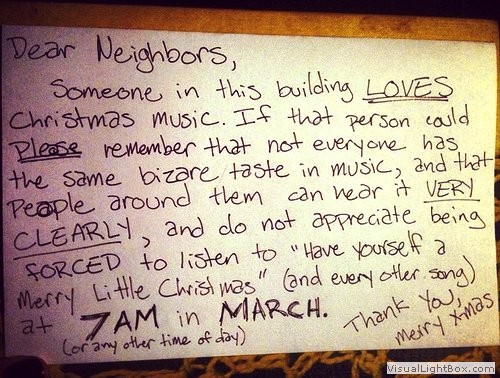 Dear Neighbors,
Someone in this building LOVES
Christmas music. If that person could
Please remember that not everyone has
the same bizare taste in music, and that
People around them can hear it VERY
CLEARLY, and do not appreciate being
FORCED to listen to "Have yourself a
Merry Little Christmas" (and every other song)
at 7AM in MARCH.
(or any other time of day)
Thank You,
Merry Xmas
VisualLightBox.com